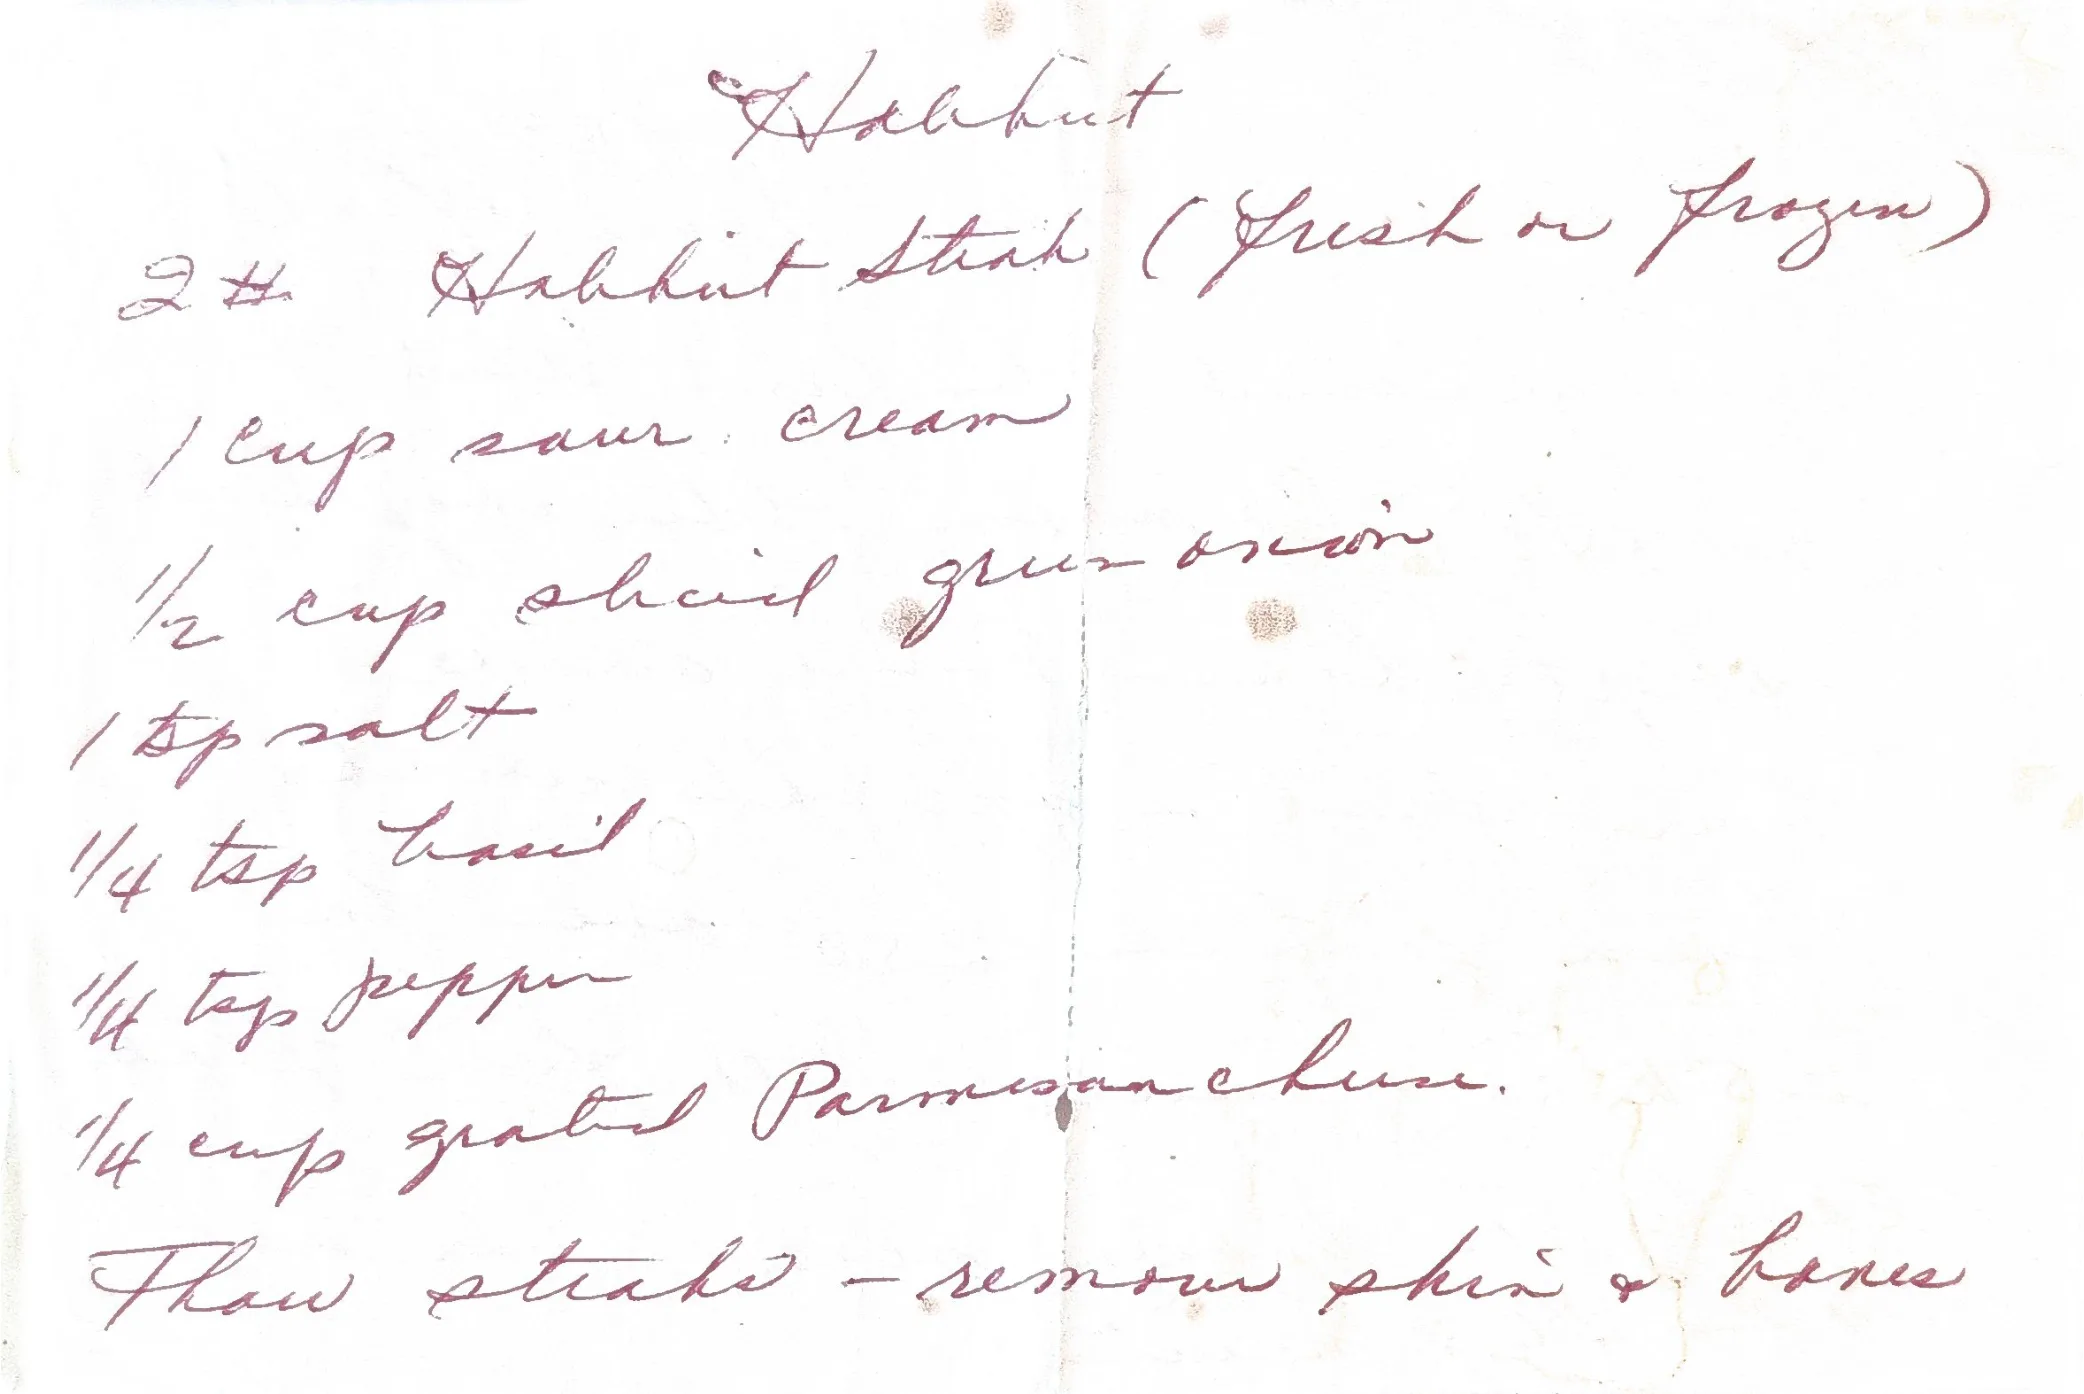 Halibut
2# Halibut Steak (fresh or frozen)
1 cup sour cream
1/2 cup sliced green onion
1 tsp salt
1/4 tsp basil
1/4 tsp pepper
1/4 cup grated Parmesan cheese.
Thaw steaks - remove skin & bones